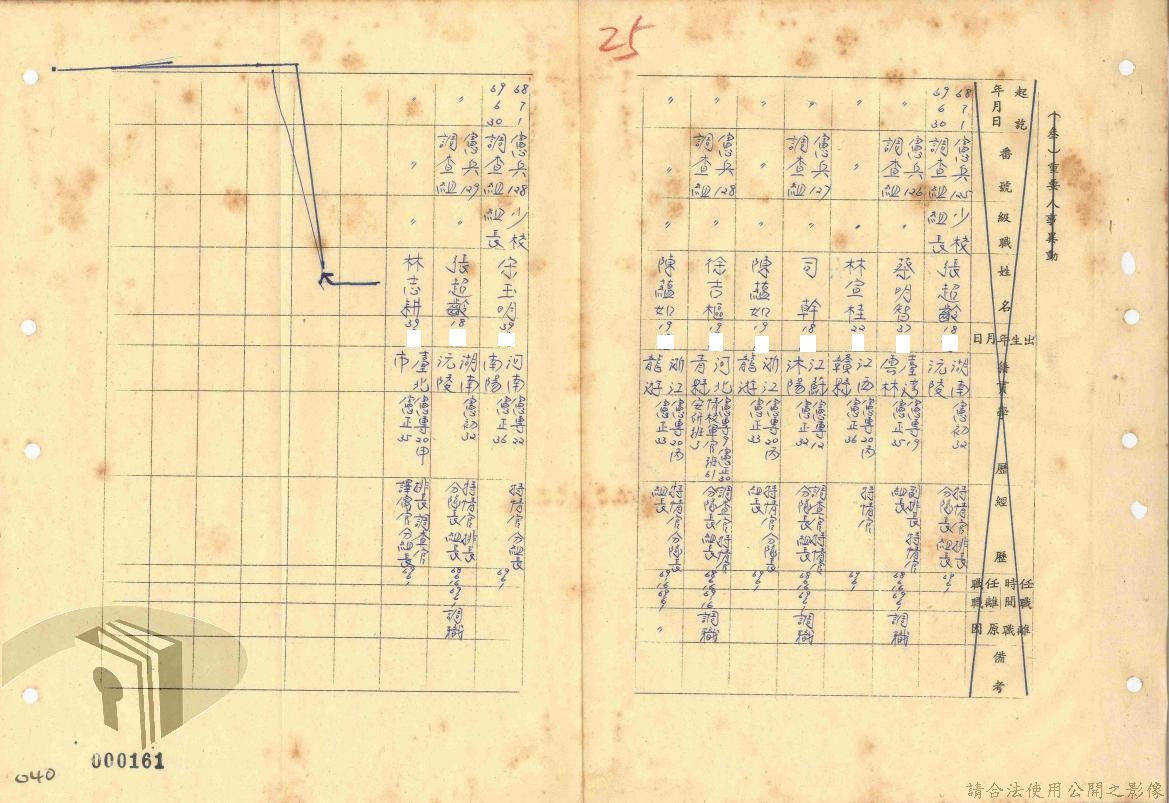 25
(叁)重要人事異動
起訖年月日
番號
級職
姓名
出生年月日
籍貫
學歷
經歷
任職時間
離職原因
備考
68 7 1
69 6 30
憲兵125調查組
少校組長
張超齡
18
湖南沅陵
憲初32
特情官排長分隊長組長
〃
憲兵126調查組
〃
蔡明智
37
臺灣雲林
憲專19
憲正35
調職
〃
〃
〃
林宣桂
22
江西贛縣
憲專20丙
憲正36
特情官
〃
憲兵127調查組
〃
司幹
18
江蘇沐陽
憲專12
憲正32
調查官特情官分隊長組長
調職
〃
〃
〃
陳蘊如
19
浙江龍游
憲專20丙
憲正33
特情官分隊長組長
〃
憲兵128調查組
〃
徐吉樞
19
河北青縣
調查官特情官分隊長組長
調職
〃
〃
〃
陳蘊如
浙江龍游
憲專20丙
憲正33
特情官分隊長組長
〃
68 7 1
69 6 30
憲兵128調查組
少校組長
宋玉明
39
河南南陽
憲專22
憲正36
特情官分組長
〃
憲兵129調查組
〃
張超齡
18
湖南沅陵
憲初32
特情官排長分隊長組長
調職
〃
〃
〃
林志耕
39
臺北市
憲專20甲
憲正35
排長調查官譯電官分組長
000161
040
請合法使用公開之影像